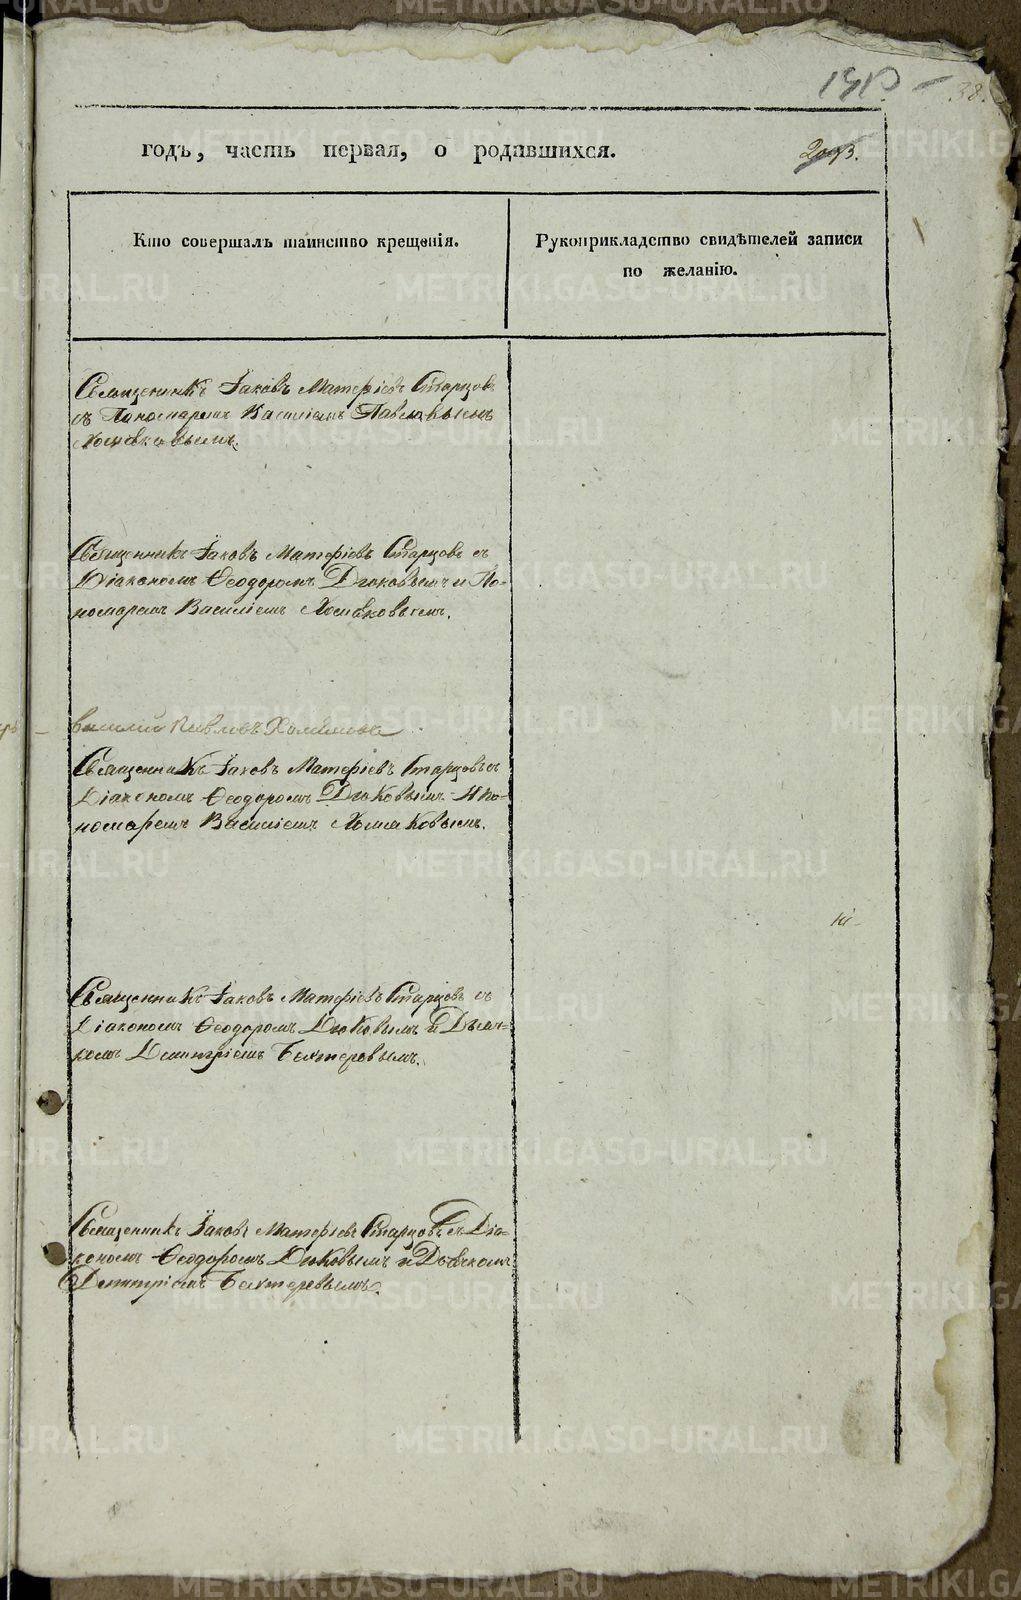 38.
годъ, часть первая, о родившихся.
Кто совершалъ таинство крещенія.
Рукоприкладство свидѣтелей записи
по желанію.
Священникъ Іаковъ Матѳіевъ Старцовъ
съ Пономаремъ Василіемъ Павловымъ
Хомяковымъ.
Священникъ Іаковъ Матѳіевъ Старцовъ съ
Діакономъ Ѳеодоромъ Дюковымъ и По-
номаремъ Василіемъ Хомяковымъ.
Василий Павловъ Хомяковъ
Священникъ Іаковъ Матѳіевъ Старцовъ съ
Діакономъ Ѳеодоромъ Дюковымъ И По-
номаремъ Василіемъ Хомяковымъ.
Священникъ Іаковъ Матѳіевъ Старцовъ съ
Діакономъ Ѳеодоромъ Дюковымъ и Дьяч-
комъ Димитріемъ Бехтеревымъ.
Священникъ Іаковъ Матѳіевъ Старцовъ съ Діа-
кономъ Ѳеодоромъ Дюковымъ и Дьячкомъ
Димитріемъ Бехтеревымъ.
METRIKI.GASO-URAL.RU